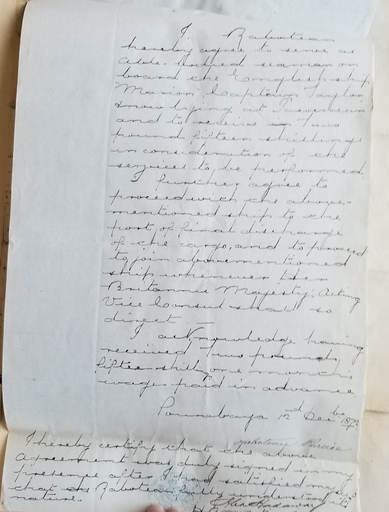 I, Rabotean
hereby agree to serve as
able-bodied seaman on
board the English ship
"Marion" Captain Taylor
now lying at
and to receive Two
pound fifteen shillings
in consideration of the
services to be performed
I further agree to
proceed with the above-
mentioned ship to the
port of final discharge
of the cargo, and to proceed
to join abovementioned
ship whenever Her
Britannic Majesty's Acting
Vice Consul shall so
direct
I acknowledge having
received Two pounds
fifteen shillgs one month's
wage paid in advance
Sourabaya 12th Decbre
I hereby certify that the above
agreement was duly signed in my
presence after I had satisfied myself
that Rabotean fully understood its
nature.